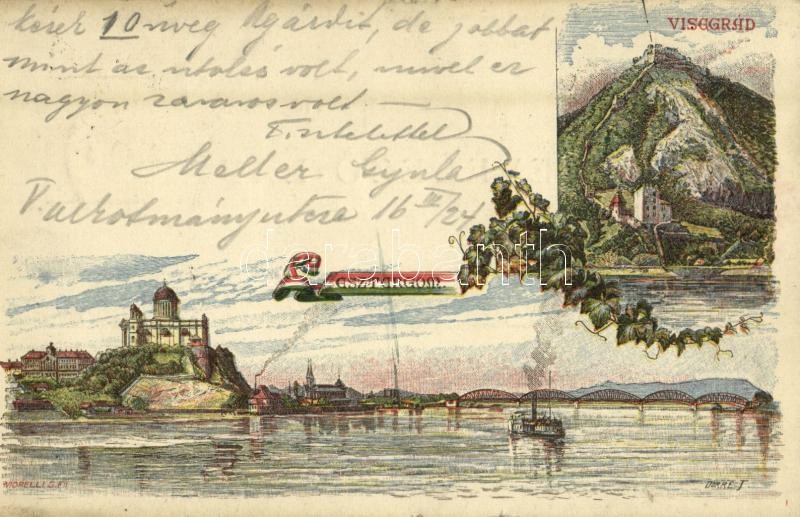 kérek 10 üveg Agárdit, de jobbat
mint az utolsó volt, mivel ez
nagyon zavaros volt —
Tisztelettel
Meller Gyula
Falkotmány utcza 16 III/24
VISEGRÁD
ESZTERGOM.
darabanth
MORELLI G. F.
DÖRRE T